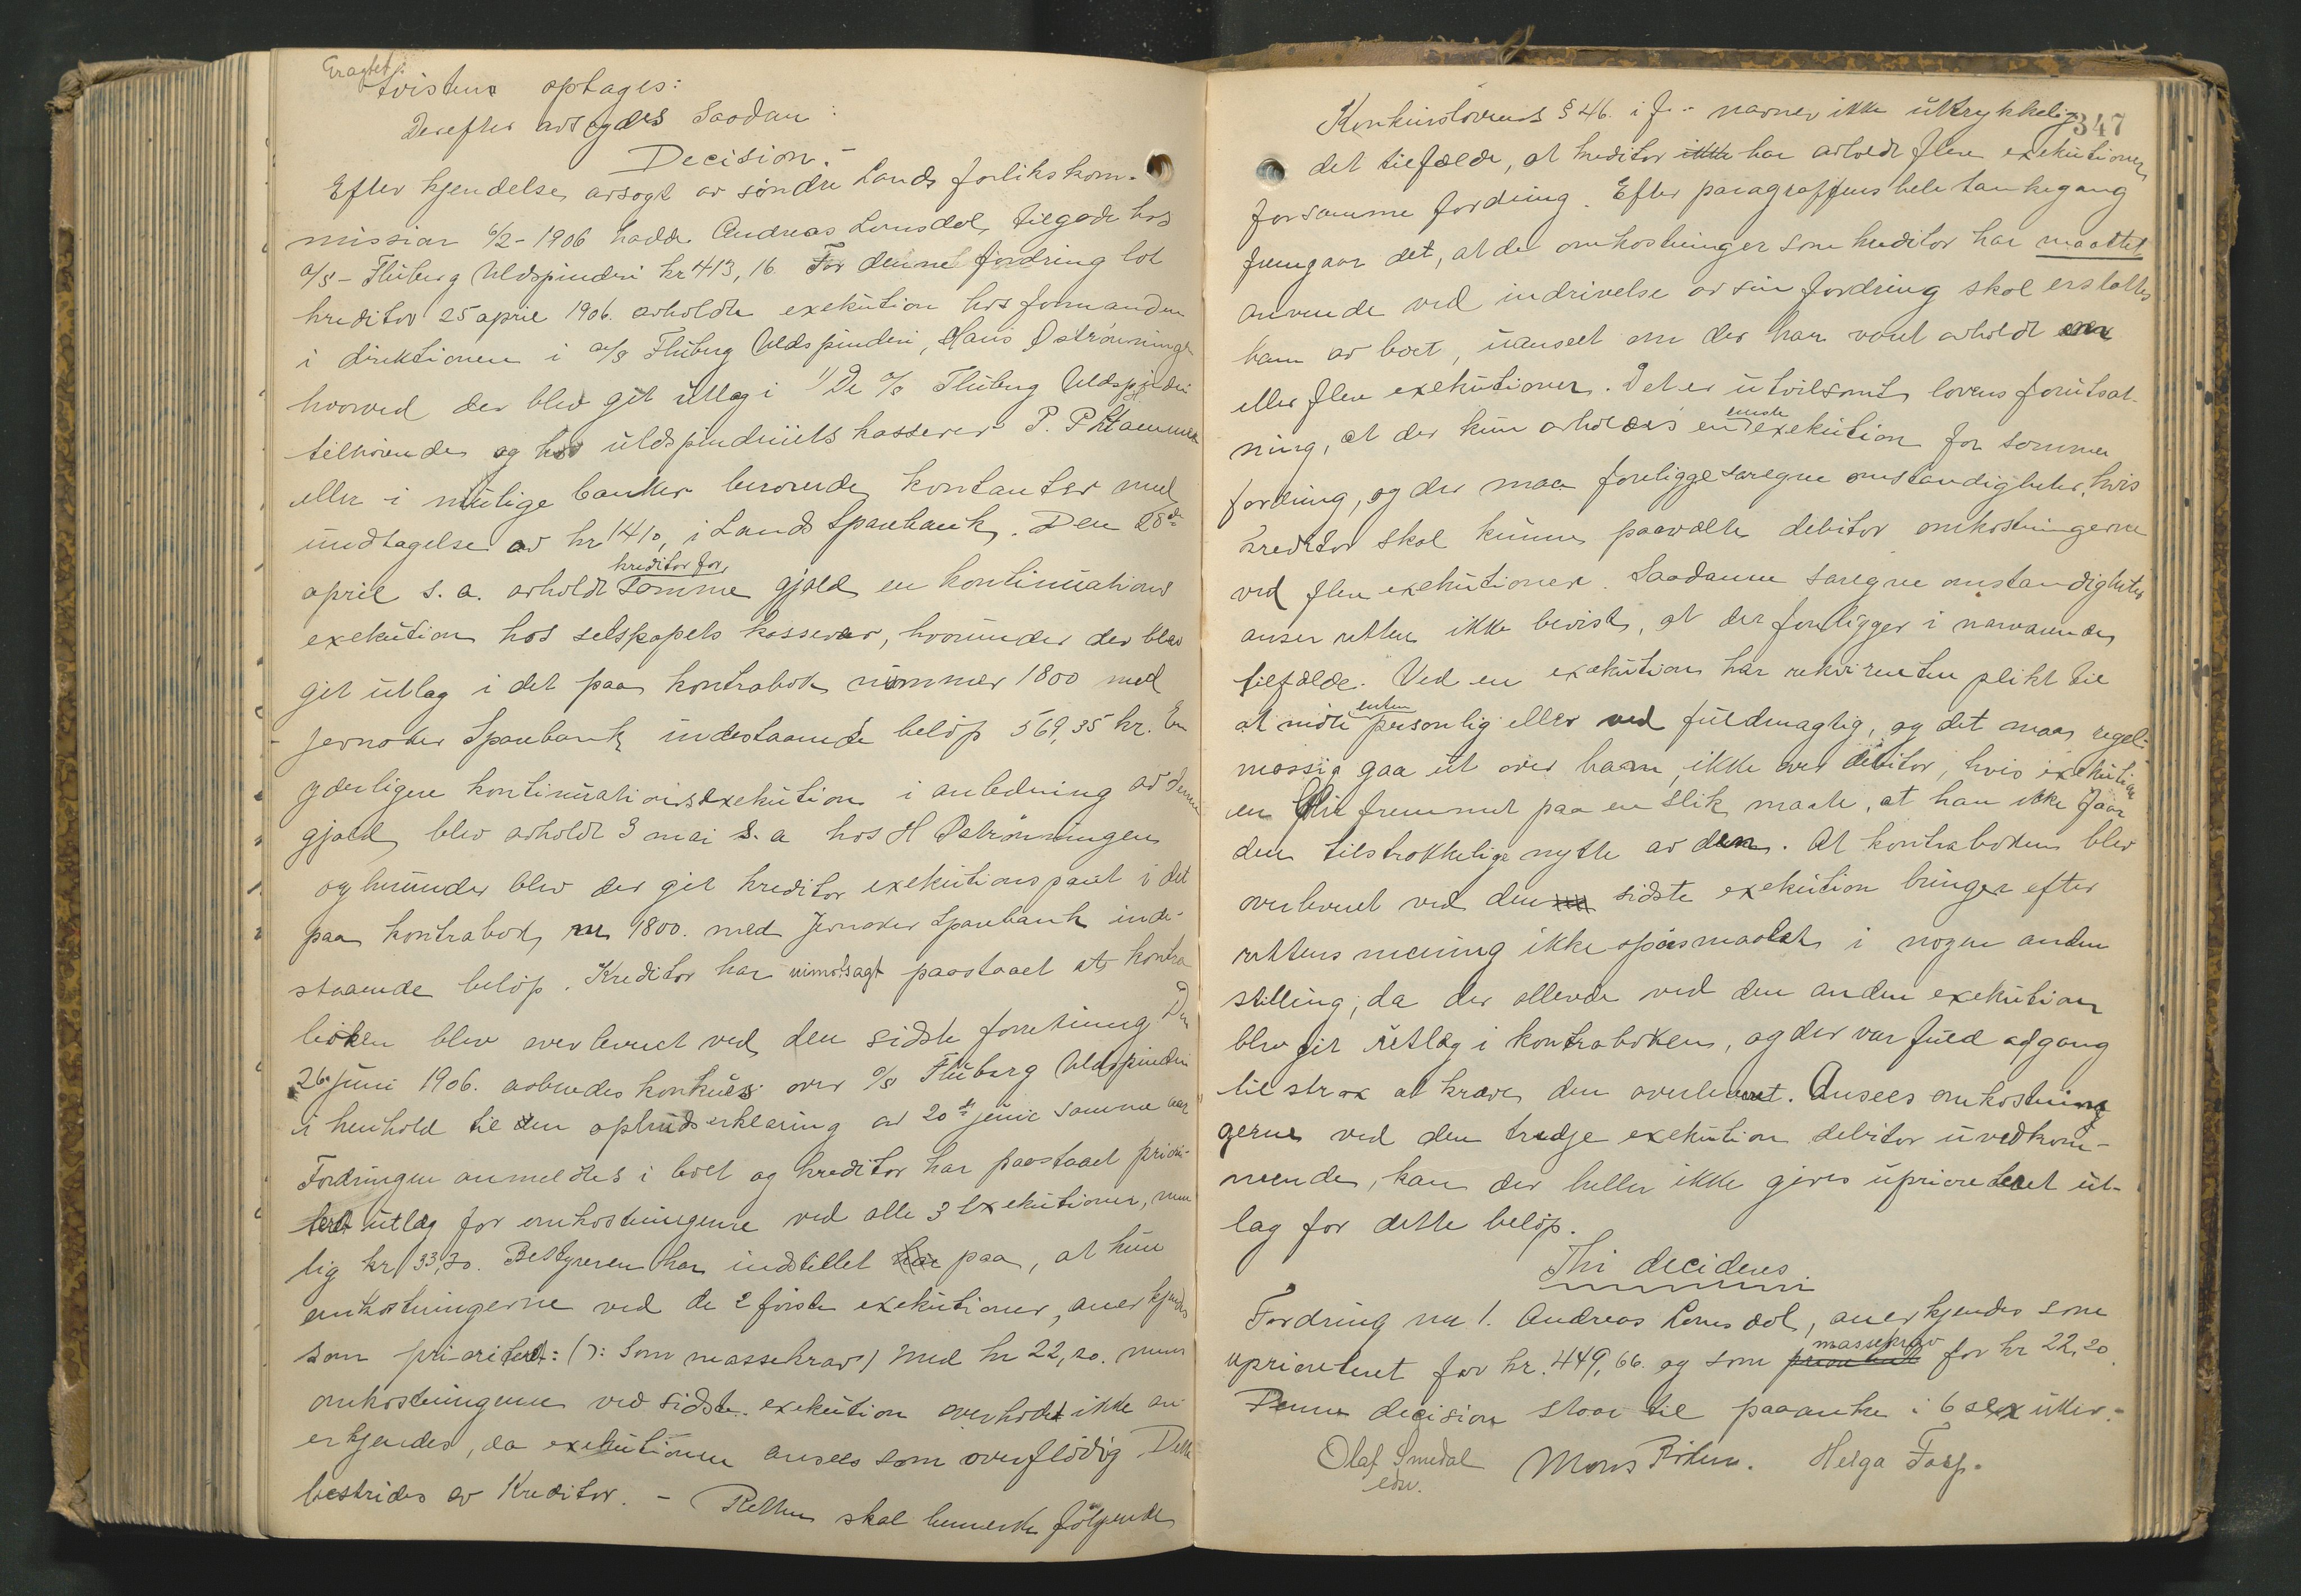 Eragtet:
tvisten optages:
Derefter avsagdes saadan:
Decision.-
Efter kjendelse avsagt av søndre Lands forlikskom-
mission 6/2-1906 hadde Andreas Lonsdal tilgode hos
a/s - Fluberg Uldspinderi kr 413,16. For denne fordring lot
kreditor 25 april 1906. avholde exekution hos formanden
i direktionen i a/s Fluberg Uldspinderi, Hans Østrønningen
hvorved der blev git utlæg i 1) De a/s Fluberg Uldspinderi
tilhørende og hos uldspinderiets kasserer P. P.
eller i mulige banker beroende kontanter med
undtagelse av kr 1410, i Lands Sparebank. Den 28de
april s. a. avholdt kreditor for samme gjæld en kontinuations
exekution hos selskapets kasserer, hvorunder der blev
git utlæg i det paa kontrabok nummer 1800 med
Jevnaker Sparebank indestaaende beløp 569,35 kr. En
yderligere kontinuationsexekution i anledning av denne
gjæld blev avholdt 3 mai s. a hos H Østrønningen
og herunder blev der git kreditor exekutionspant i det
paa kontrabok nr 1800. med Jevnaker Sparebank inde-
staaende beløp. Kreditor har uimotsagt paastaaet at kontra
boken blev overleveret ved den sidste forretning. Den
26. juni 1906. aabnedes konkurs over a/s Fluberg Uldspinderi
i henhold til den opbudserklæring av 20de juni samme aar.
Fordringen anmeldtes i boet og kreditor har paastaaet priori-
tert utlæg for omkostningerne ved alle 3 Exekutioner, nem
lig kr 33,30. Bestyreren har indstillet har paa, at kun
omkostningerne ved de 2 første exekutioner, anerkjendes
som prioritert: (ɔ: Som massekrav) med kr 22,20. mens
omkostningerne ved sidste exekution overhodet ikke an-
erkjendes, da exekutionen ansees som overflødig Dette
bestrides av Kreditor. - Retten skal bemerke følgende
347
Konkurslovens § 46. i f. - nævner ikke uttrykkelig
det tilfælde, at kreditor ikke har avholdt flere exekutioner
for samme fordring. Efter paragraffens hele tankegang
fremgaar det, at de omkostninger som kreditor har maattet
anvende ved inddrivelse av sin fordring skal erstattes
ham av boet, uanseet om der har været avholdt en
eller flere exekutioner. Det er utvilsomt lovens forutsæt-
ning, at der kun avholdes en eneste exekution for samme
fordring, og der maa foreligge særegne omstændigheter, hvis
kreditor skal kunne paavælte debitor omkostningerne
ved flere exekutioner. Saadanne særegne omstændigheter
anser retten ikke bevist, at der foreligger i nærværende
tilfælde. Ved en exekution har rekvirenten plikt til
at møte enten personlig eller ved fuldmægtig, og det maa regel-
mæssig gaa ut over ham, ikke over debitor, hvis exekution
en blir fremmet paa en slik maate, at han ikke faar
den tilstrækkelige nytte av den. At kontraboken blev
overlevert ved den sidste exekution bringer efter
rettens mening ikke spørsmaalet i nogen anden
stilling, da der allerede ved den anden exekution
blev git utlæg i kontraboken, og der var fuld adgang
til strax at kræve den overleveret. Ansees omkostning
gerne ved den tredje exekution debitor uvedkom-
mende, kan der heller ikke gives uprioriteret ut-
læg for dette beløp.
Thi decideres
Fordring nr 1. Andreas Lonsdal, anerkjendes som
uprioriteret for kr. 449,66. og som prioritert massekrav for kr 22,20.
Denne decision staar til paaanke i 6 sex uker.-
Olaf Smedal Mons Helga
edsv.